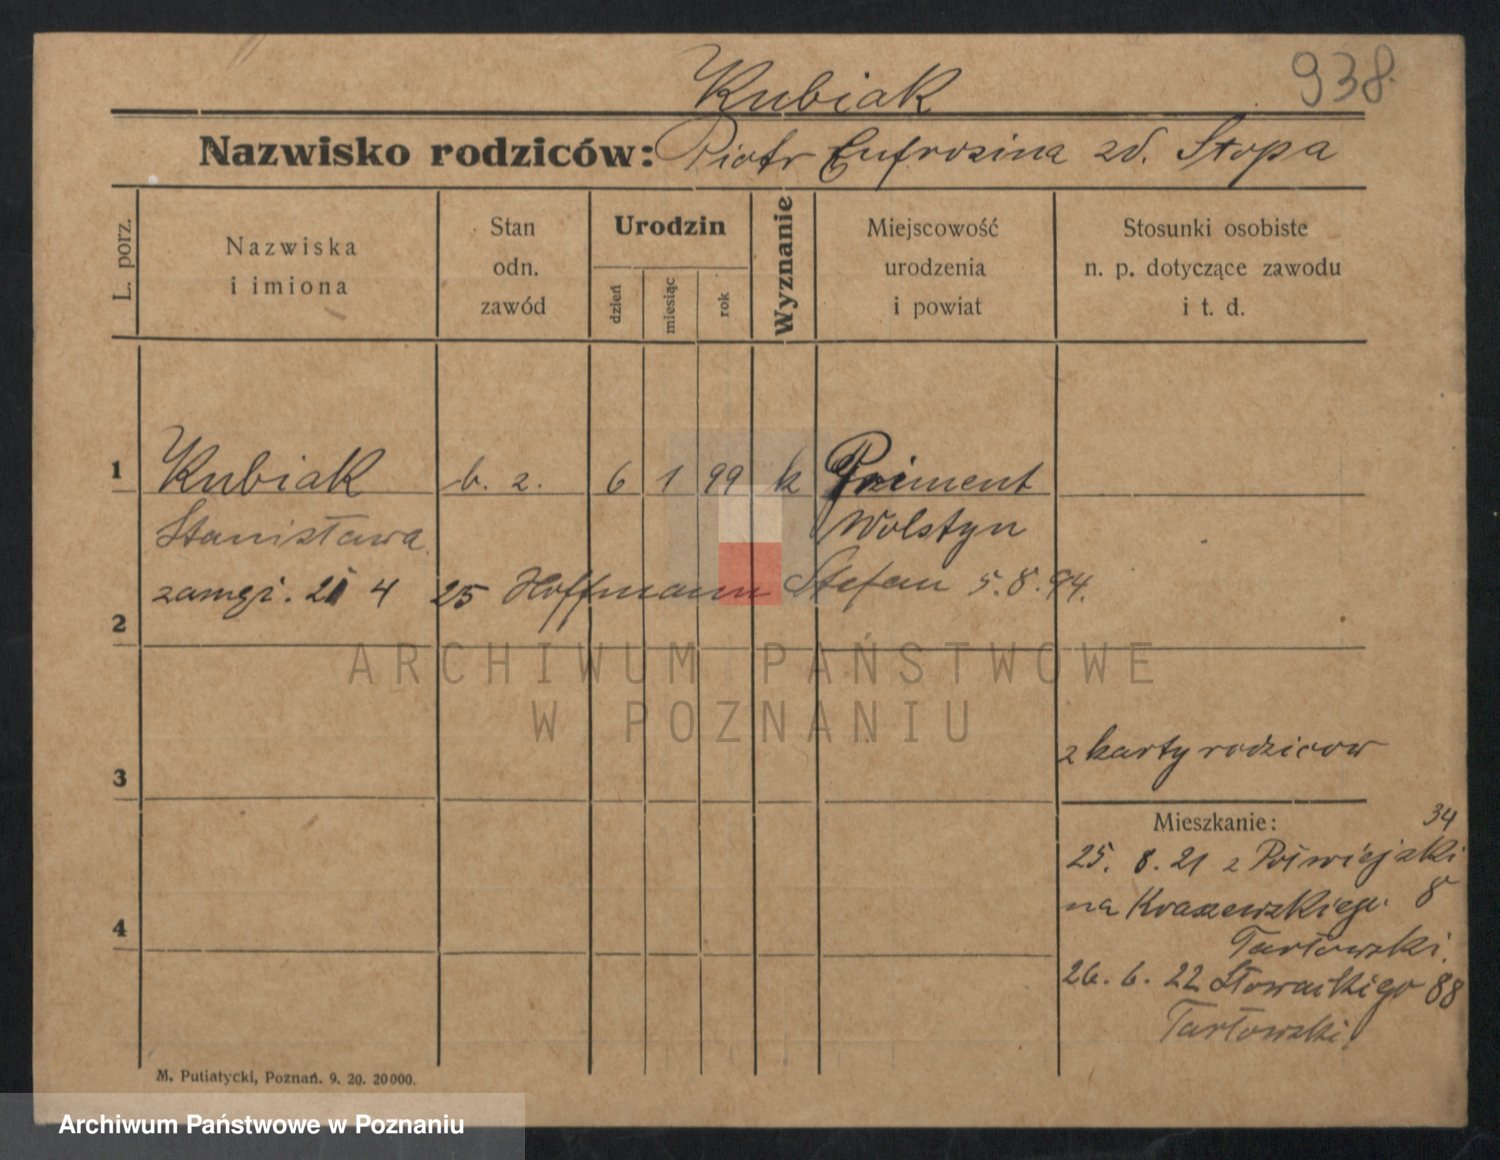 938.
Kubiak
Nazwisko rodziców: Piotr Eufrozina zd. Stopa
L. porz.
Nazwiska
i imiona
Stan
odn.
zawód
Urodzin
dzień
miesiąc
rok
Wyznanie
Miejscowość
urodzenia
i powiat
Stosunki osobiste
n. p. dotyczące zawodu
i t. d.
1 Kubiak b. z. 6 1 99 k Priment
Stanisława Wolstyn
zamęż. 21 4 25 Hoffmann Stefan 5.8.94.
2
ARCHIWUM PAŃSTWOWE
W POZNANIU
z karty rodziców
3
Mieszkanie:
34
25. 8. 21 z Poświejski
na Kraszewskiego 8
Tarłowski.
4
26. 6. 22 Słowackiego 88
Tarłowski.
M. Putiatycki, Poznań. 9. 20. 20000.
Archiwum Państwowe w Poznaniu